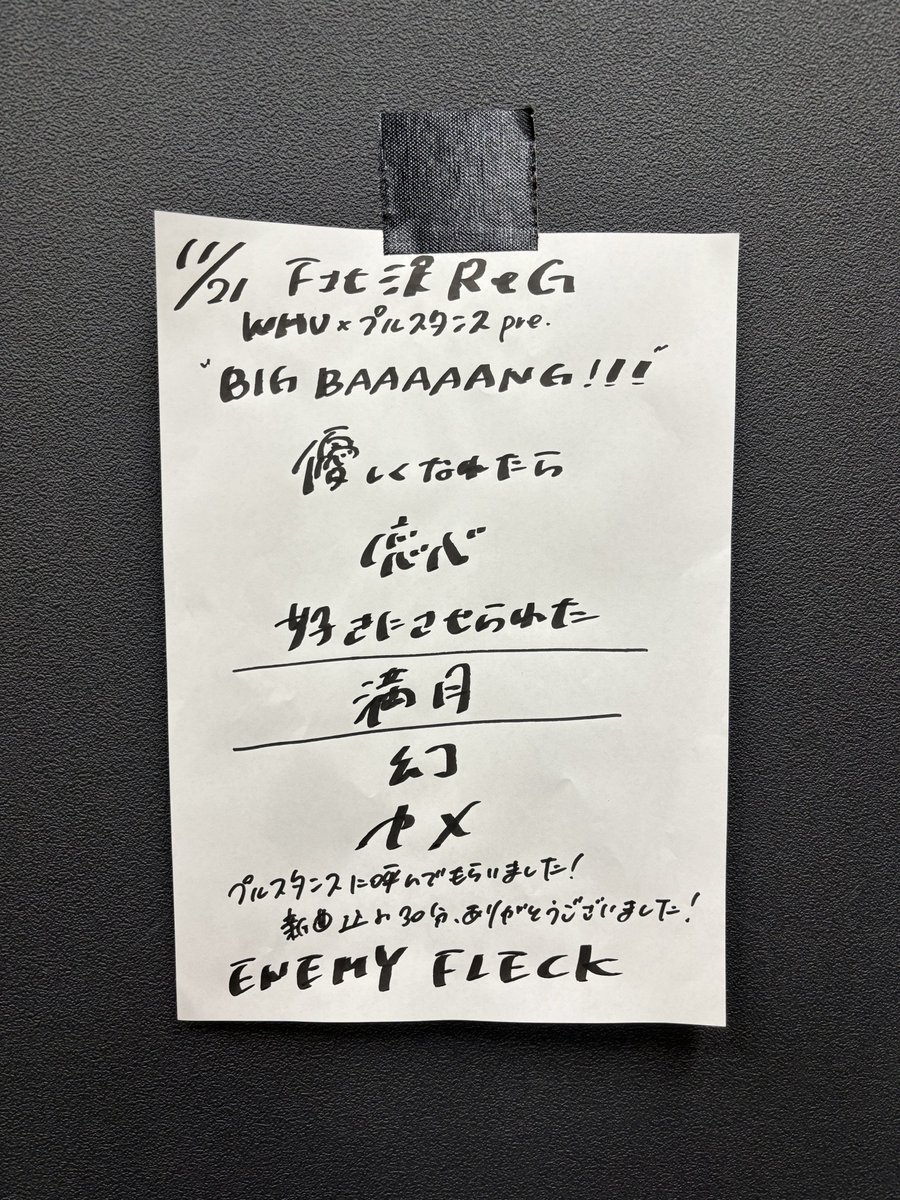 11/21 下北沢ReG
WHU×プルスタンス pre.
"BIG BAAAAAANG!!!"
優しくなれたら
恋心
好きにさせられた
満月
幻
ヤメ
プルスタンスに呼んでもらいました!
新曲込み30分、ありがとうございました!
ENEMY FLECK